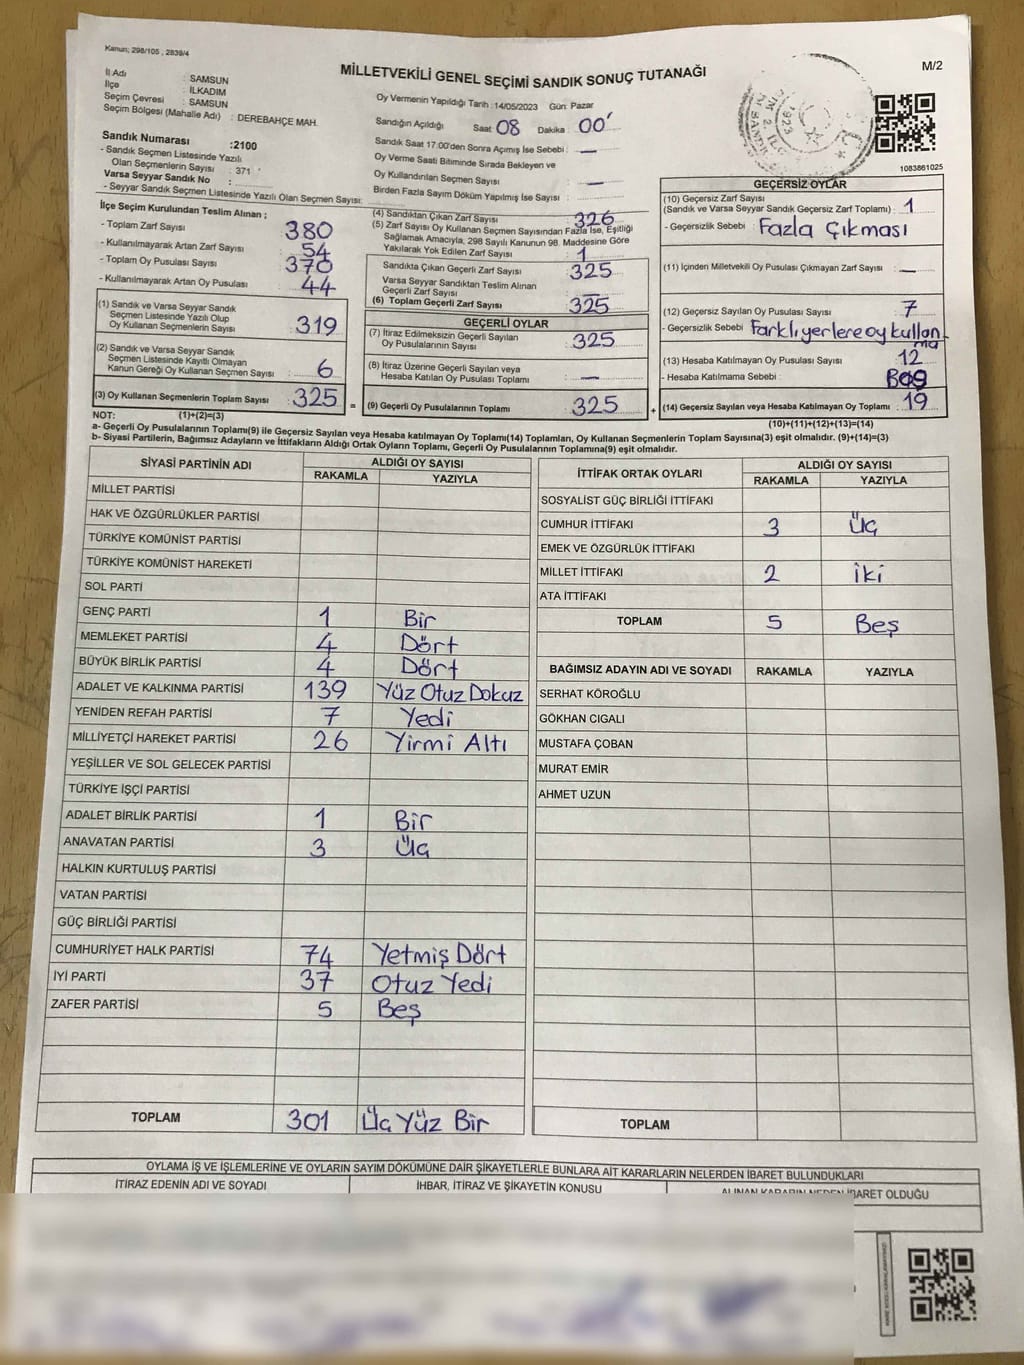 Kanun; 298/105 , 2839/4
MİLLETVEKİLİ GENEL SEÇİMİ SANDIK SONUÇ TUTANAĞI
M/2
İl Adı : SAMSUN
İlçe : İLKADIM
Seçim Çevresi : SAMSUN
Seçim Bölgesi (Mahalle Adı) : DEREBAHÇE MAH.
Sandık Numarası :2100
- Sandık Seçmen Listesinde Yazılı
Olan Seçmenlerin Sayısı : 371
Varsa Seyyar Sandık No :
- Seyyar Sandık Seçmen Listesinde Yazılı Olan Seçmen Sayısı:
Oy Vermenin Yapıldığı Tarih : 14/05/2023 Gün: Pazar
Sandığın Açıldığı Saat 08 Dakika : 00'
Sandık Saat 17.00'den Sonra Açımış İse Sebebi :
Oy Verme Saati Bitiminde Sırada Bekleyen ve
Oy Kullandırılan Seçmen Sayısı :
Birden Fazla Sayım Döküm Yapılmış İse Sayısı :
1083861025
İlçe Seçim Kurulundan Teslim Alınan ;
- Toplam Zarf Sayısı : 380
- Kullanılmayarak Artan Zarf Sayısı : 54
- Toplam Oy Pusulası Sayısı : 370
- Kullanılmayarak Artan Oy Pusulası : 44
(1) Sandık ve Varsa Seyyar Sandık
Seçmen Listesinde Yazılı Olup
Oy Kullanan Seçmenlerin Sayısı : 319
(2) Sandık ve Varsa Seyyar Sandık
Seçmen Listesinde Kayıtlı Olmayan
Kanun Gereği Oy Kullanan Seçmen Sayısı : 6
(3) Oy Kullanan Seçmenlerin Toplam Sayısı : 325
(4) Sandıktan Çıkan Zarf Sayısı : 326
(5) Zarf Sayısı Oy Kullanan Seçmen Sayısından Fazla İse, Eşitliği
Sağlamak Amacıyla, 298 Sayılı Kanunun 98. Maddesine Göre
Yakılarak Yok Edilen Zarf Sayısı : 1
Sandıkta Çıkan Geçerli Zarf Sayısı : 325
Varsa Seyyar Sandıktan Teslim Alınan
Geçerli Zarf Sayısı :
(6) Toplam Geçerli Zarf Sayısı : 325
GEÇERLİ OYLAR
(7) İtiraz Edilmeksizin Geçerli Sayılan
Oy Pusulalarının Sayısı : 325
(8) İtiraz Üzerine Geçerli Sayılan veya
Hesaba Katılan Oy Pusulası Toplamı :
= (9) Geçerli Oy Pusulalarının Toplamı : 325 +
GEÇERSİZ OYLAR
(10) Geçersiz Zarf Sayısı
(Sandık ve Varsa Seyyar Sandık Geçersiz Zarf Toplamı) : 1
- Geçersizlik Sebebi : Fazla Çıkması
(11) İçinden Milletvekili Oy Pusulası Çıkmayan Zarf Sayısı :
(12) Geçersiz Sayılan Oy Pusulası Sayısı : 7
- Geçersizlik Sebebi : Farklı yerlere oy kullan
ma
(13) Hesaba Katılmayan Oy Pusulası Sayısı : 12
- Hesaba Katılmama Sebebi : Boş
(14) Geçersiz Sayılan veya Hesaba Katılmayan Oy Toplamı : 19
NOT: (1)+(2)=(3)
(10)+(11)+(12)+(13)=(14)
a- Geçerli Oy Pusulalarının Toplamı(9) ile Geçersiz Sayılan veya Hesaba katılmayan Oy Toplamı(14) Toplamları, Oy Kullanan Seçmenlerin Toplam Sayısına(3) eşit olmalıdır. (9)+(14)=(3)
b- Siyasi Partilerin, Bağımsız Adayların ve İttifakların Aldığı Ortak Oyların Toplamı, Geçerli Oy Pusulalarının Toplamına(9) eşit olmalıdır.
SİYASİ PARTİNİN ADI ALDIĞI OY SAYISI
RAKAMLA YAZIYLA
MİLLET PARTİSİ
HAK VE ÖZGÜRLÜKLER PARTİSİ
TÜRKİYE KOMÜNİST PARTİSİ
TÜRKİYE KOMÜNİST HAREKETİ
SOL PARTİ
GENÇ PARTİ 1 Bir
MEMLEKET PARTİSİ 4 Dört
BÜYÜK BİRLİK PARTİSİ 4 Dört
ADALET VE KALKINMA PARTİSİ 139 Yüz Otuz Dokuz
YENİDEN REFAH PARTİSİ 7 Yedi
MİLLİYETÇİ HAREKET PARTİSİ 26 Yirmi Altı
YEŞİLLER VE SOL GELECEK PARTİSİ
TÜRKİYE İŞÇİ PARTİSİ
ADALET BİRLİK PARTİSİ 1 Bir
ANAVATAN PARTİSİ 3 Üç
HALKIN KURTULUŞ PARTİSİ
VATAN PARTİSİ
GÜÇ BİRLİĞİ PARTİSİ
CUMHURİYET HALK PARTİSİ 74 Yetmiş Dört
İYİ PARTİ 37 Otuz Yedi
ZAFER PARTİSİ 5 Beş
TOPLAM 301 Üç Yüz Bir
İTTİFAK ORTAK OYLARI ALDIĞI OY SAYISI
RAKAMLA YAZIYLA
SOSYALİST GÜÇ BİRLİĞİ İTTİFAKI
CUMHUR İTTİFAKI 3 Üç
EMEK VE ÖZGÜRLÜK İTTİFAKI
MİLLET İTTİFAKI 2 İki
ATA İTTİFAKI
TOPLAM 5 Beş
BAĞIMSIZ ADAYIN ADI VE SOYADI RAKAMLA YAZIYLA
SERHAT KÖROĞLU
GÖKHAN CIGALI
MUSTAFA ÇOBAN
MURAT EMİR
AHMET UZUN
TOPLAM
OYLAMA İŞ VE İŞLEMLERİNE VE OYLARIN SAYIM DÖKÜMÜNE DAİR ŞİKAYETLERLE BUNLARA AİT KARARLARIN NELERDEN İBARET BULUNDUKLARI
İTİRAZ EDENİN ADI VE SOYADI İHBAR, İTİRAZ VE ŞİKAYETİN KONUSU ALINAN KARARIN NEDEN İBARET OLDUĞU